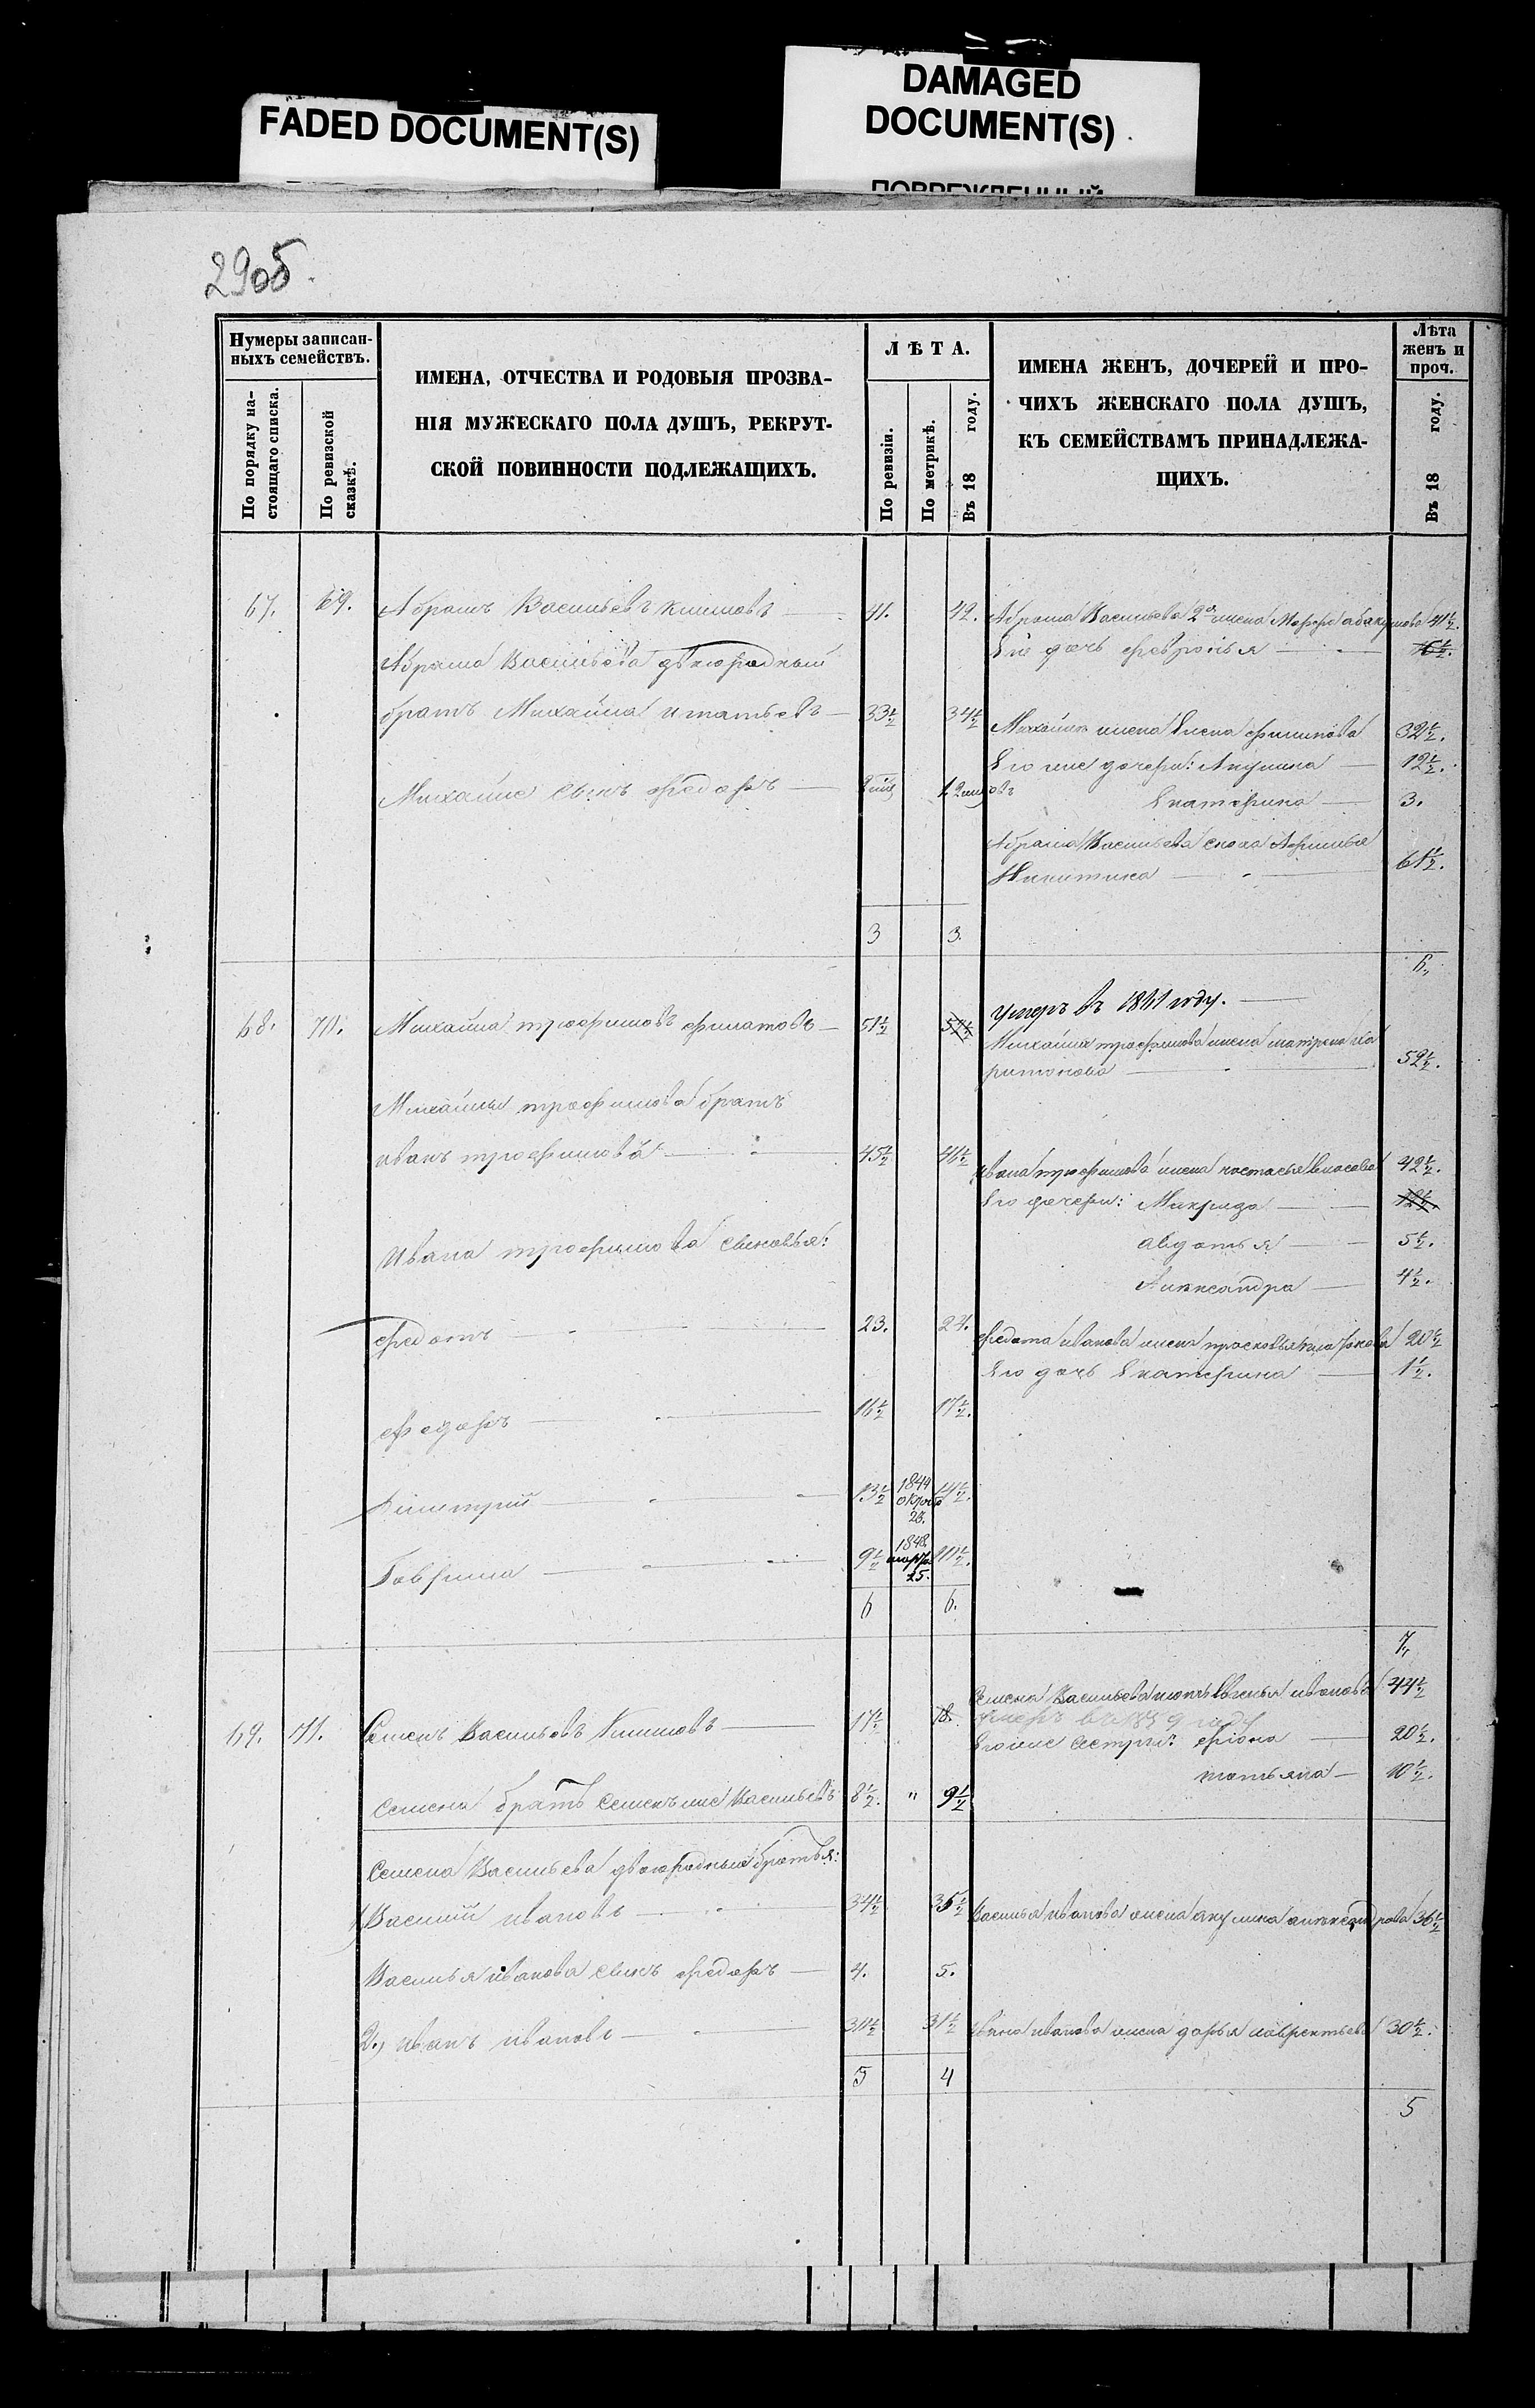 FADED DOCUMENT(S)
DAMAGED
DOCUMENT(S)
ПОВРЕЖДЕННЫЙ
2905.
Нумеры записан-
ныхъ семействъ.
По порядку на-
стоящаго списка.
По ревизской
сказкѣ.
ИМЕНА, ОТЧЕСТВА И РОДОВЫЯ ПРОЗВА-
НІЯ МУЖЕСКАГО ПОЛА ДУШЪ, РЕКРУТ-
СКОЙ ПОВИННОСТИ ПОДЛЕЖАЩИХЪ.
ЛѢТА.
По ревизіи.
По метрикѣ.
Въ 18 году.
ИМЕНА ЖЕНЪ, ДОЧЕРЕЙ И ПРО-
ЧИХЪ ЖЕНСКАГО ПОЛА ДУШЪ,
КЪ СЕМЕЙСТВАМЪ ПРИНАДЛЕЖА-
ЩИХЪ.
Лѣта
женъ и
проч.
Въ 18 году.
67. 69. Абрамъ Васильевъ Климовъ 41. 42. Абрама Васильева 2я жена Марфа абакумова 41½.
Его дочь февронья 16½.
Абрама Васильева двоюродный
братъ Михайла игнатьевъ 33½ 34½
Михайлы жена Елена филипова 32½.
Его же дочери: Акулина 12½.
Михайлы сынъ федоръ
Екатерина 3.
Абрама Васильева сноха Афимья
Никитина 61½.
3 3.
6.
68. 70. Михайла трофимовъ филатовъ 51½ 52½
умеръ въ 1861 году.
Михайлы трофимова жена матрена ха
ритонова 52½.
Михайлы трофимова братъ
иванъ трофимовъ 45½ 46½
ивана трофимова жена настасья власова 42½.
Его дочери: Макрида
авдотья 5½.
Ивана трофимова сыновья:
Александра 4½.
федотъ 23. 24. федота иванова жена прасковья 20½
Его дочь Екатерина 1½.
федоръ 16½ 17½.
Димитрій 13½ 1844 октяб 23. 14½.
Гаврила 9½ 1848 март 25. 10½.
6 6.
7.
Семена Васильева мать Евгенья иванова 44½
69. 71. Семенъ Васильевъ Климовъ 17½ 18.
умеръ въ 1859 году
Его же сестры: фіона 20½.
татьяна 10½.
Семена братъ Семенъ же Васильевъ 8½. " 9½
Семена Васильева двоюродныя братья:
1) Василій ивановъ 34½ 35½ Василья иванова жена акулина александрова 36½
Василья иванова сынъ федоръ 4. 5.
2.) иванъ ивановъ 30½ 31½ ивана иванова жена дарья лаврентьева 30½.
5 4
5